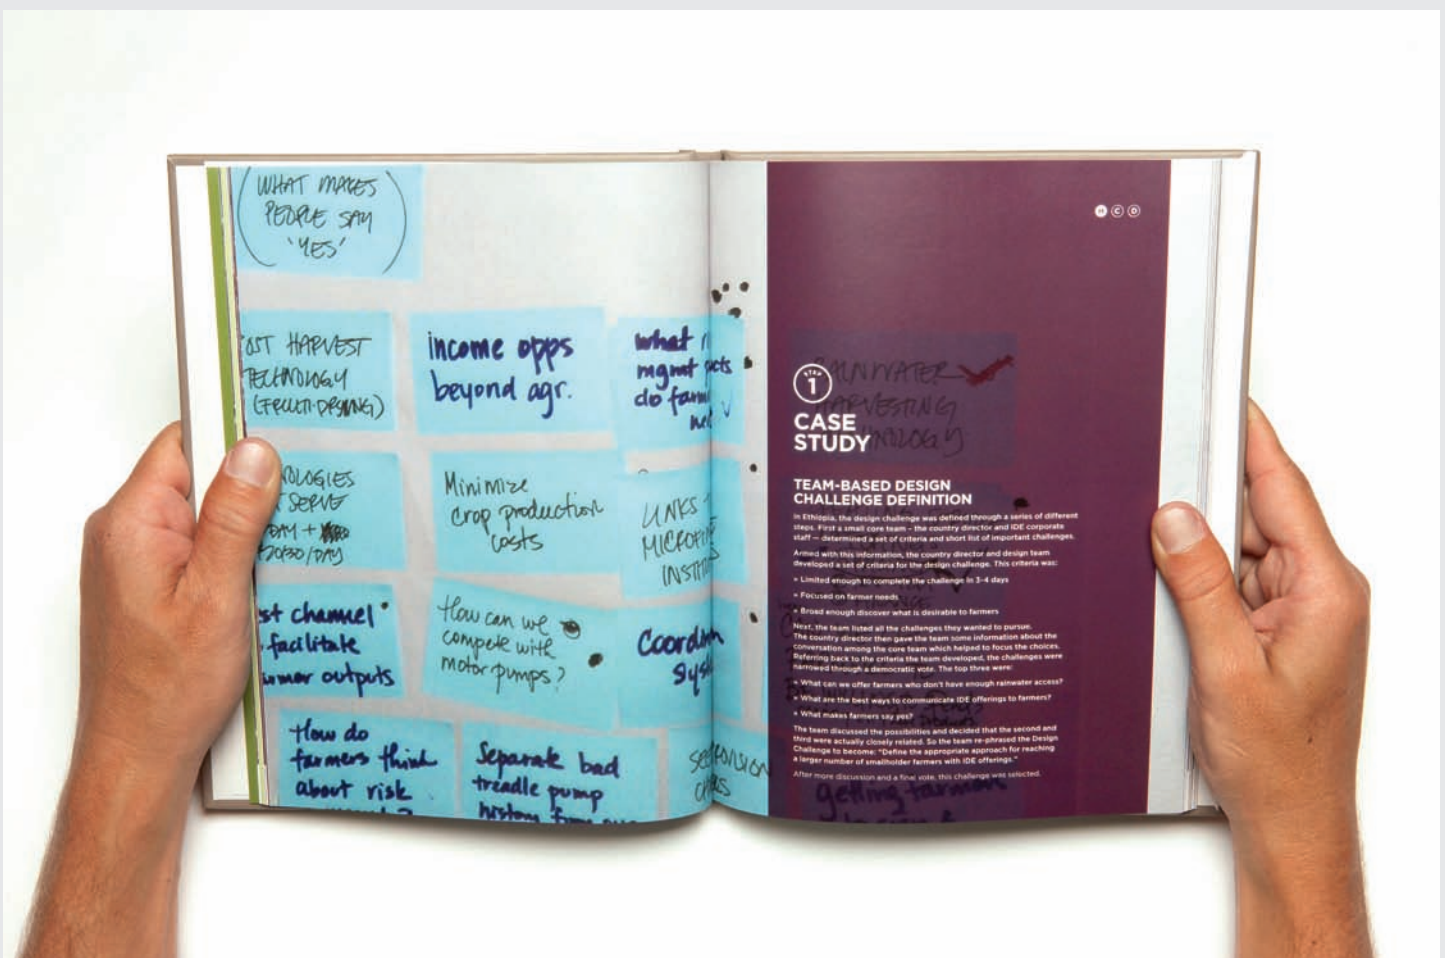 (WHAT MAKES
PEOPLE SAY
'YES')
OST HARVEST
TECHNOLOGY
income opps
beyond agr.
what
mgmt
do farm
NOLOGIES
SERVE
DAY +
/DAY
Minimize
crop production
costs
LINKS
st channel
facilitate
outputs
How can we
compete with
motor pumps?
Coordin
Sys
How do
farmers think
about risk
Separate bad
treadle pump
history from our
H C D
RAINWATER
HARVESTING
NOLOGY
STEP
1
CASE
STUDY
TEAM-BASED DESIGN
CHALLENGE DEFINITION
In Ethiopia, the design challenge was defined through a series of different
steps. First a small core team – the country director and IDE corporate
staff — determined a set of criteria and short list of important challenges.
Armed with this information, the country director and design team
developed a set of criteria for the design challenge. This criteria was:
» Limited enough to complete the challenge in 3-4 days
» Focused on farmer needs
» Broad enough discover what is desirable to farmers
Next, the team listed all the challenges they wanted to pursue.
The country director then gave the team some information about the
conversation among the core team which helped to focus the choices.
Referring back to the criteria the team developed, the challenges were
narrowed through a democratic vote. The top three were:
» What can we offer farmers who don't have enough rainwater access?
» What are the best ways to communicate IDE offerings to farmers?
» What makes farmers say yes?
The team discussed the possibilities and decided that the second and
third were actually closely related. So the team re-phrased the Design
Challenge to become: "Define the appropriate approach for reaching
a larger number of smallholder farmers with IDE offerings."
After more discussion and a final vote, this challenge was selected.
getting farmers